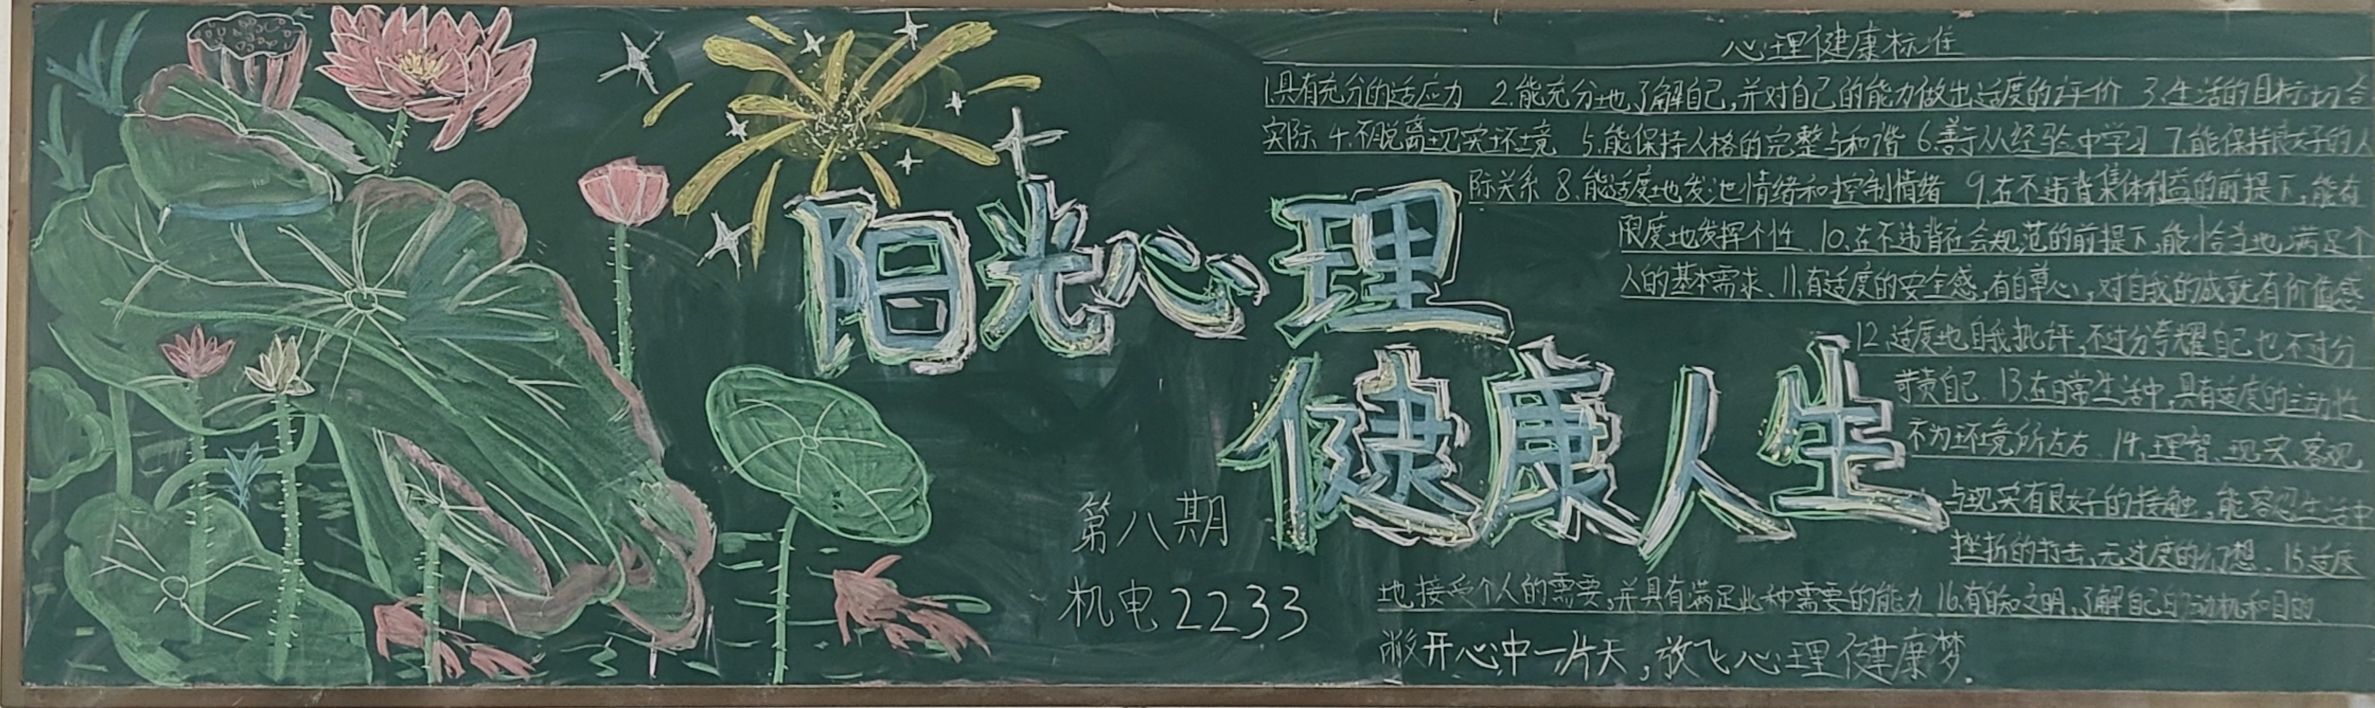 阳光心理
健康人生
第八期
机电2233
心理健康标准
1.具有充分的适应力 2.能充分地了解自己,并对自己的能力做出适度的评价 3.生活的目标切合
实际 4.不脱离现实环境 5.能保持人格的完整与和谐 6.善于从经验中学习 7.能保持良好的人
际关系 8.能适度地发泄情绪和控制情绪 9.在不违背集体利益的前提下,能有
限度地发挥个性、10.在不违背社会规范的前提下,能恰当地满足个
人的基本需求、11.有适度的安全感,有自尊心,对自我的成就有价值感
12.适度地自我批评,不过分夸耀自己也不过分
苛责自己 13.在日常生活中,具有适度的主动性
不为环境所左右 14.理智、现实、客观
与现实有良好的接触,能容忍生活中
挫折的打击,无过度的幻想、15.适度
地接受个人的需要,并具有满足此种需要的能力 16.有自知之明、了解自己的动机和目的、
敞开心中一片天,放飞心理健康梦.